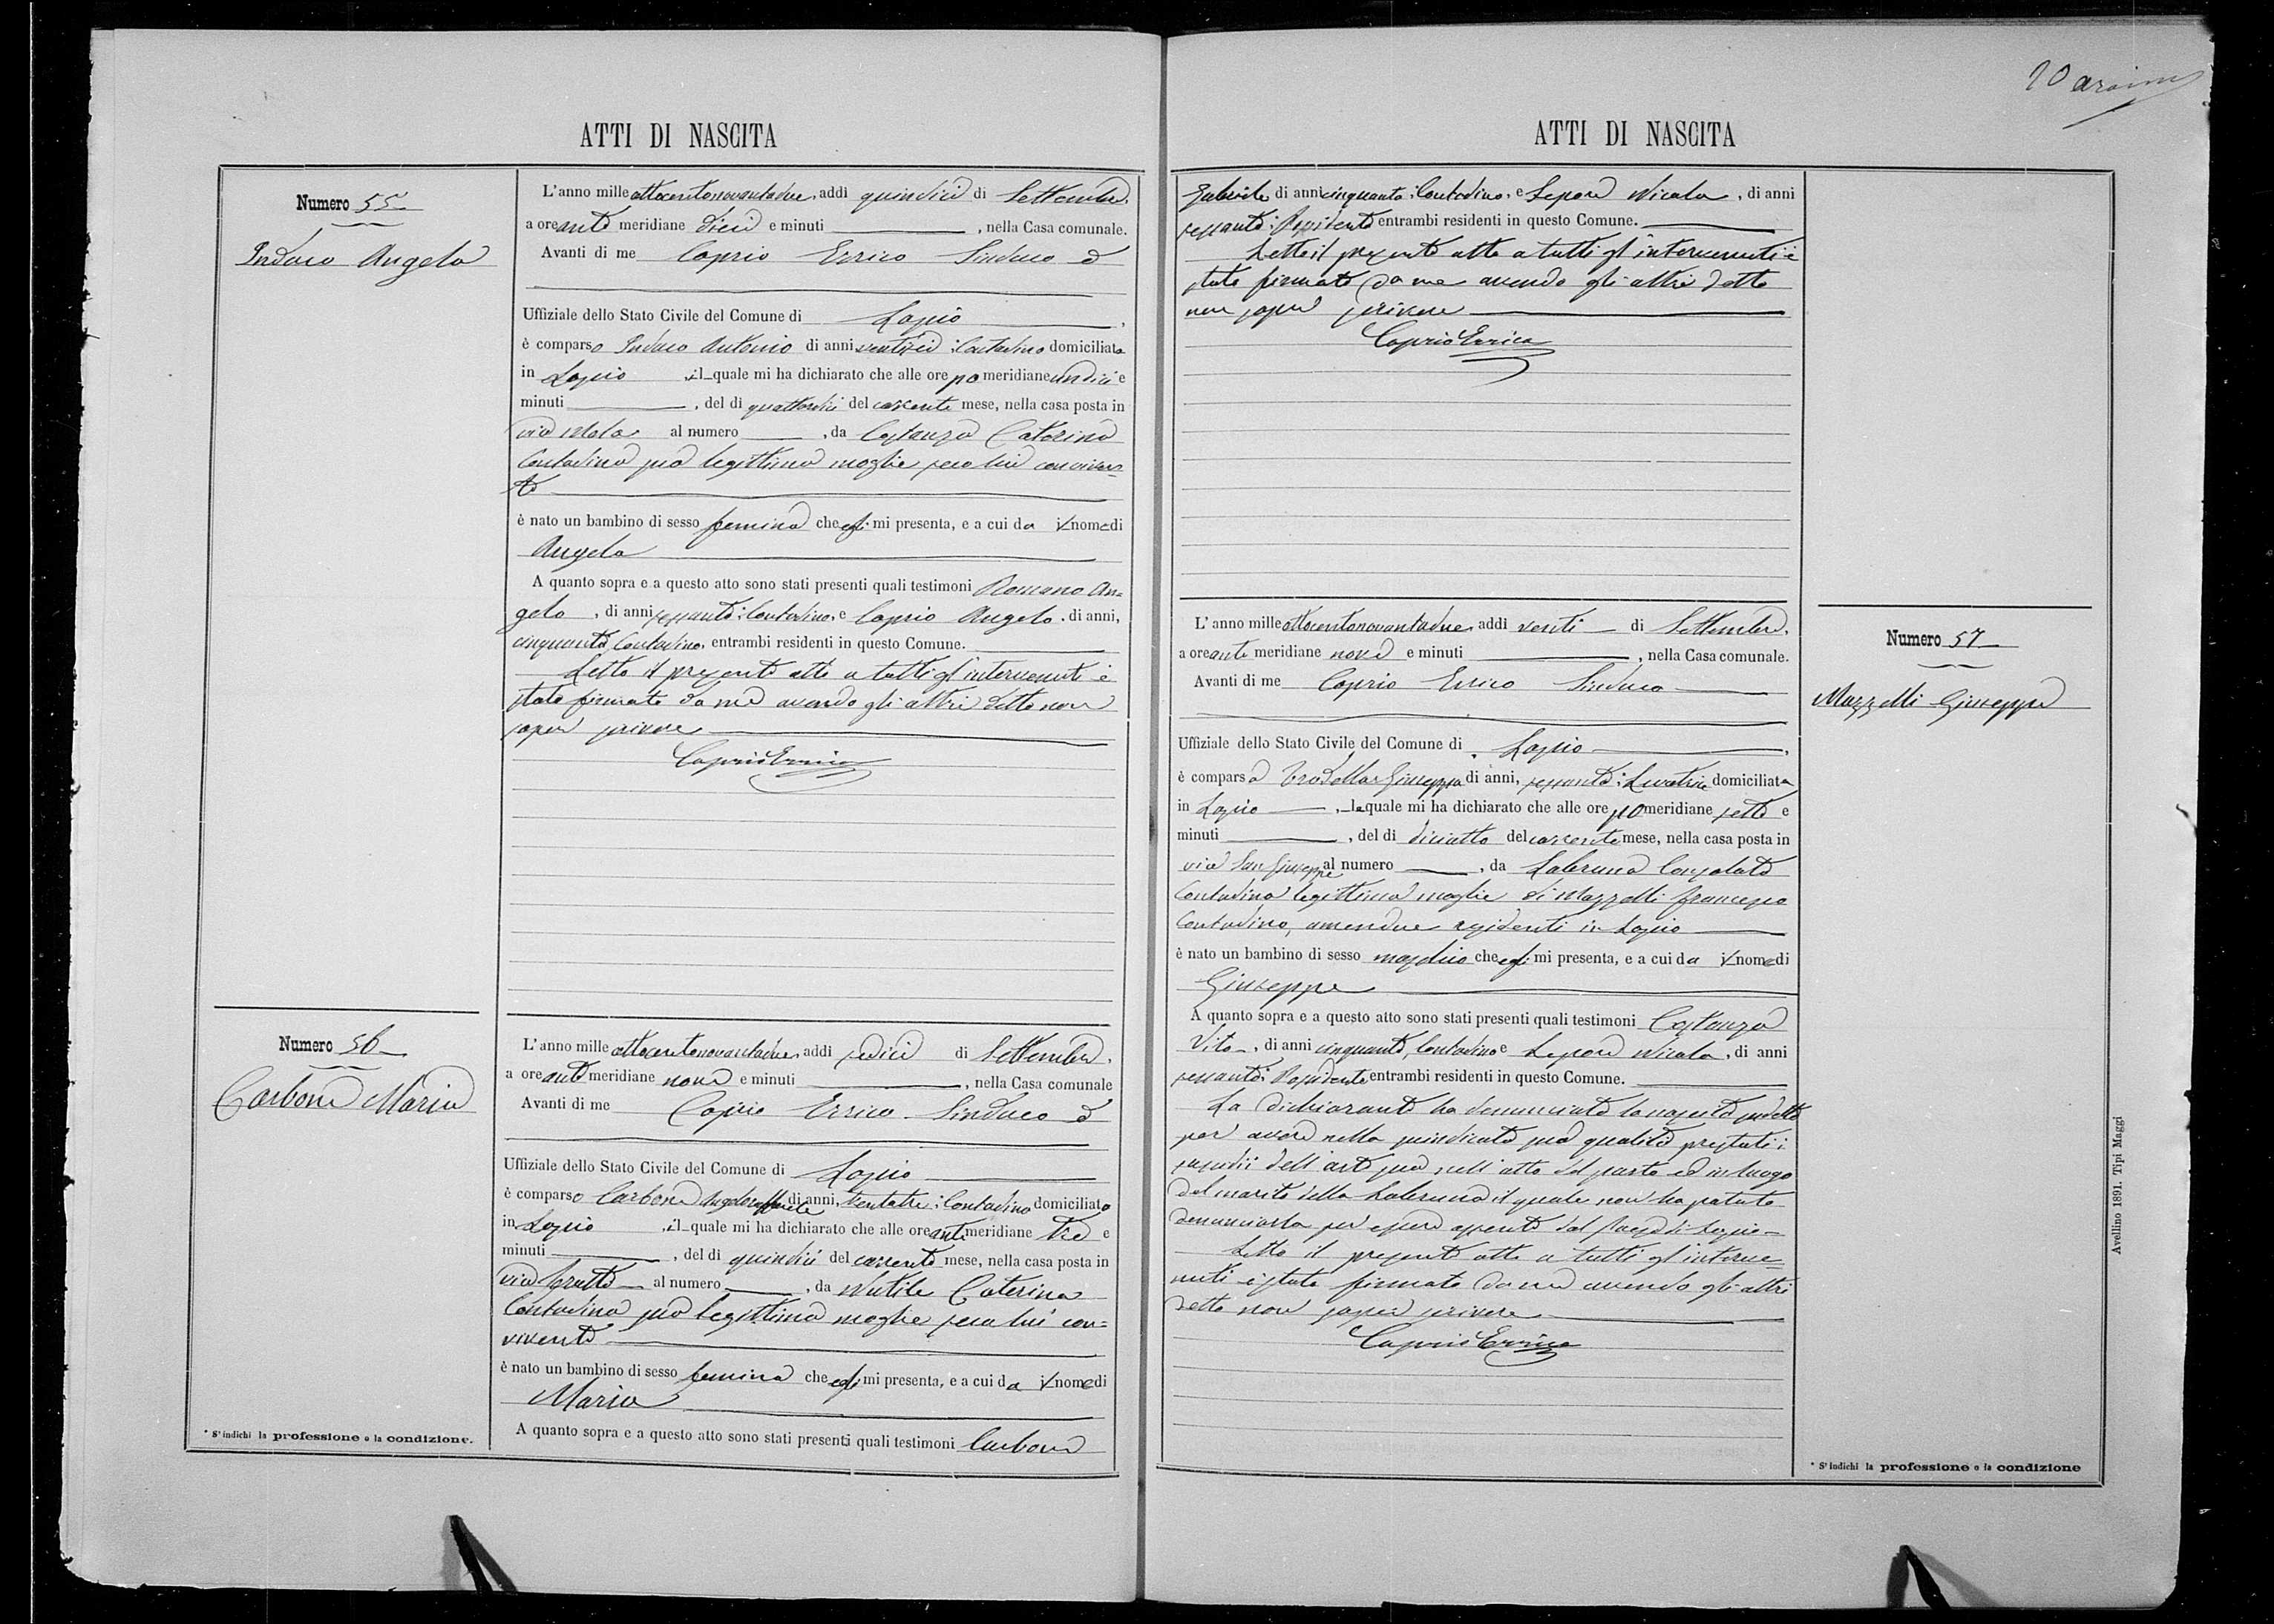 ATTI DI NASCITA
Numero 55
Induco Angela
L'anno mille ottocentonovantadue, addì quindici di Settembre,
a ore ante meridiane dieci e minuti, nella Casa comunale.
Avanti di me Caprio Errico Sindaco
Uffiziale dello Stato Civile del Comune di Lapio,
è comparso Induco Antonio di anni ventisei; Contadino domiciliato
in Lapio, il quale mi ha dichiarato che alle ore pomeridiane undici e
minuti, del dì quattordici del corrente mese, nella casa posta in
via Mola al numero, da Costanza Caterina
Contadina sua legittima moglie seco lui conviven=
te
è nato un bambino di sesso femina che egli mi presenta, e a cui da il nome di
Angela
A quanto sopra e a questo atto sono stati presenti quali testimoni Romano An=
gelo, di anni sessanta; Contadino, e Caprio Angelo, di anni,
cinquanta Contadino, entrambi residenti in questo Comune.
Letto il presente atto a tutti gl'intervenuti è
stato firmato da me avendo gli altri detto non
saper scrivere
Caprio Errico
Numero 56
Carbone Maria
L'anno mille ottocentonovantadue, addì sedici di Settembre,
a ore ante meridiane nove e minuti, nella Casa comunale
Avanti di me Caprio Errico Sindaco
Uffiziale dello Stato Civile del Comune di Lapio
è comparso Carbone Angeloraffaele di anni, trentatre; Contadino domiciliato
in Lapio, il quale mi ha dichiarato che alle ore antimeridiane tre e
minuti, del dì quindici del corrente mese, nella casa posta in
via al numero, da Nutile Caterina
Contadina sua legittima moglie seco lui con=
vivente
è nato un bambino di sesso femina che egli mi presenta, e a cui da il nome di
Maria
A quanto sopra e a questo atto sono stati presenti quali testimoni Carbone
* S'indichi la professione o la condizione.
ATTI DI NASCITA
Gabriele di anni cinquanta; Contadino, e Lepore Nicola, di anni
sessanta; Possidente entrambi residenti in questo Comune.
Letto il presente atto a tutti gl'intervenuti è
stato firmato da me avendo gli altri detto
non saper scrivere
Caprio Errico
Numero 57
Mazzelli Giuseppe
L'anno mille ottocentonovantadue, addì venti di Settembre,
a ore ante meridiane nove e minuti, nella Casa comunale.
Avanti di me Caprio Errico Sindaco
Uffiziale dello Stato Civile del Comune di Lapio,
è comparsa Giuseppa di anni, sessanta; Levatrice domiciliata
in Lapio, la quale mi ha dichiarato che alle ore pomeridiane sette e
minuti, del dì diciotto del corrente mese, nella casa posta in
via San Giuseppe al numero, da Laleruna Consolata
Contadina legittima moglie di Mazzelli Francesco
Contadino, amendue residenti in Lapio
è nato un bambino di sesso maschio che egli mi presenta, e a cui da il nome di
Giuseppe
A quanto sopra e a questo atto sono stati presenti quali testimoni Costanza
Vito, di anni cinquanta, Contadino e Lepore Nicola, di anni
sessanta; Possidente entrambi residenti in questo Comune.
La dichiarante ha denunciato la nascita sudetta
per avere nella suindicata sua qualità prestati i
sussidii dell'arte sua nell'atto del parto ed in luogo
del marito della Laleruna il quale non ha potuto
denunciarla per essere assente dal Paese di Lapio
Letto il presente atto a tutti gl'interve=
nuti è stato firmato da me avendo gli altri
detto non saper scrivere
Caprio Errico
* S'indichi la professione o la condizione
Avellino 1891. Tipi Maggi